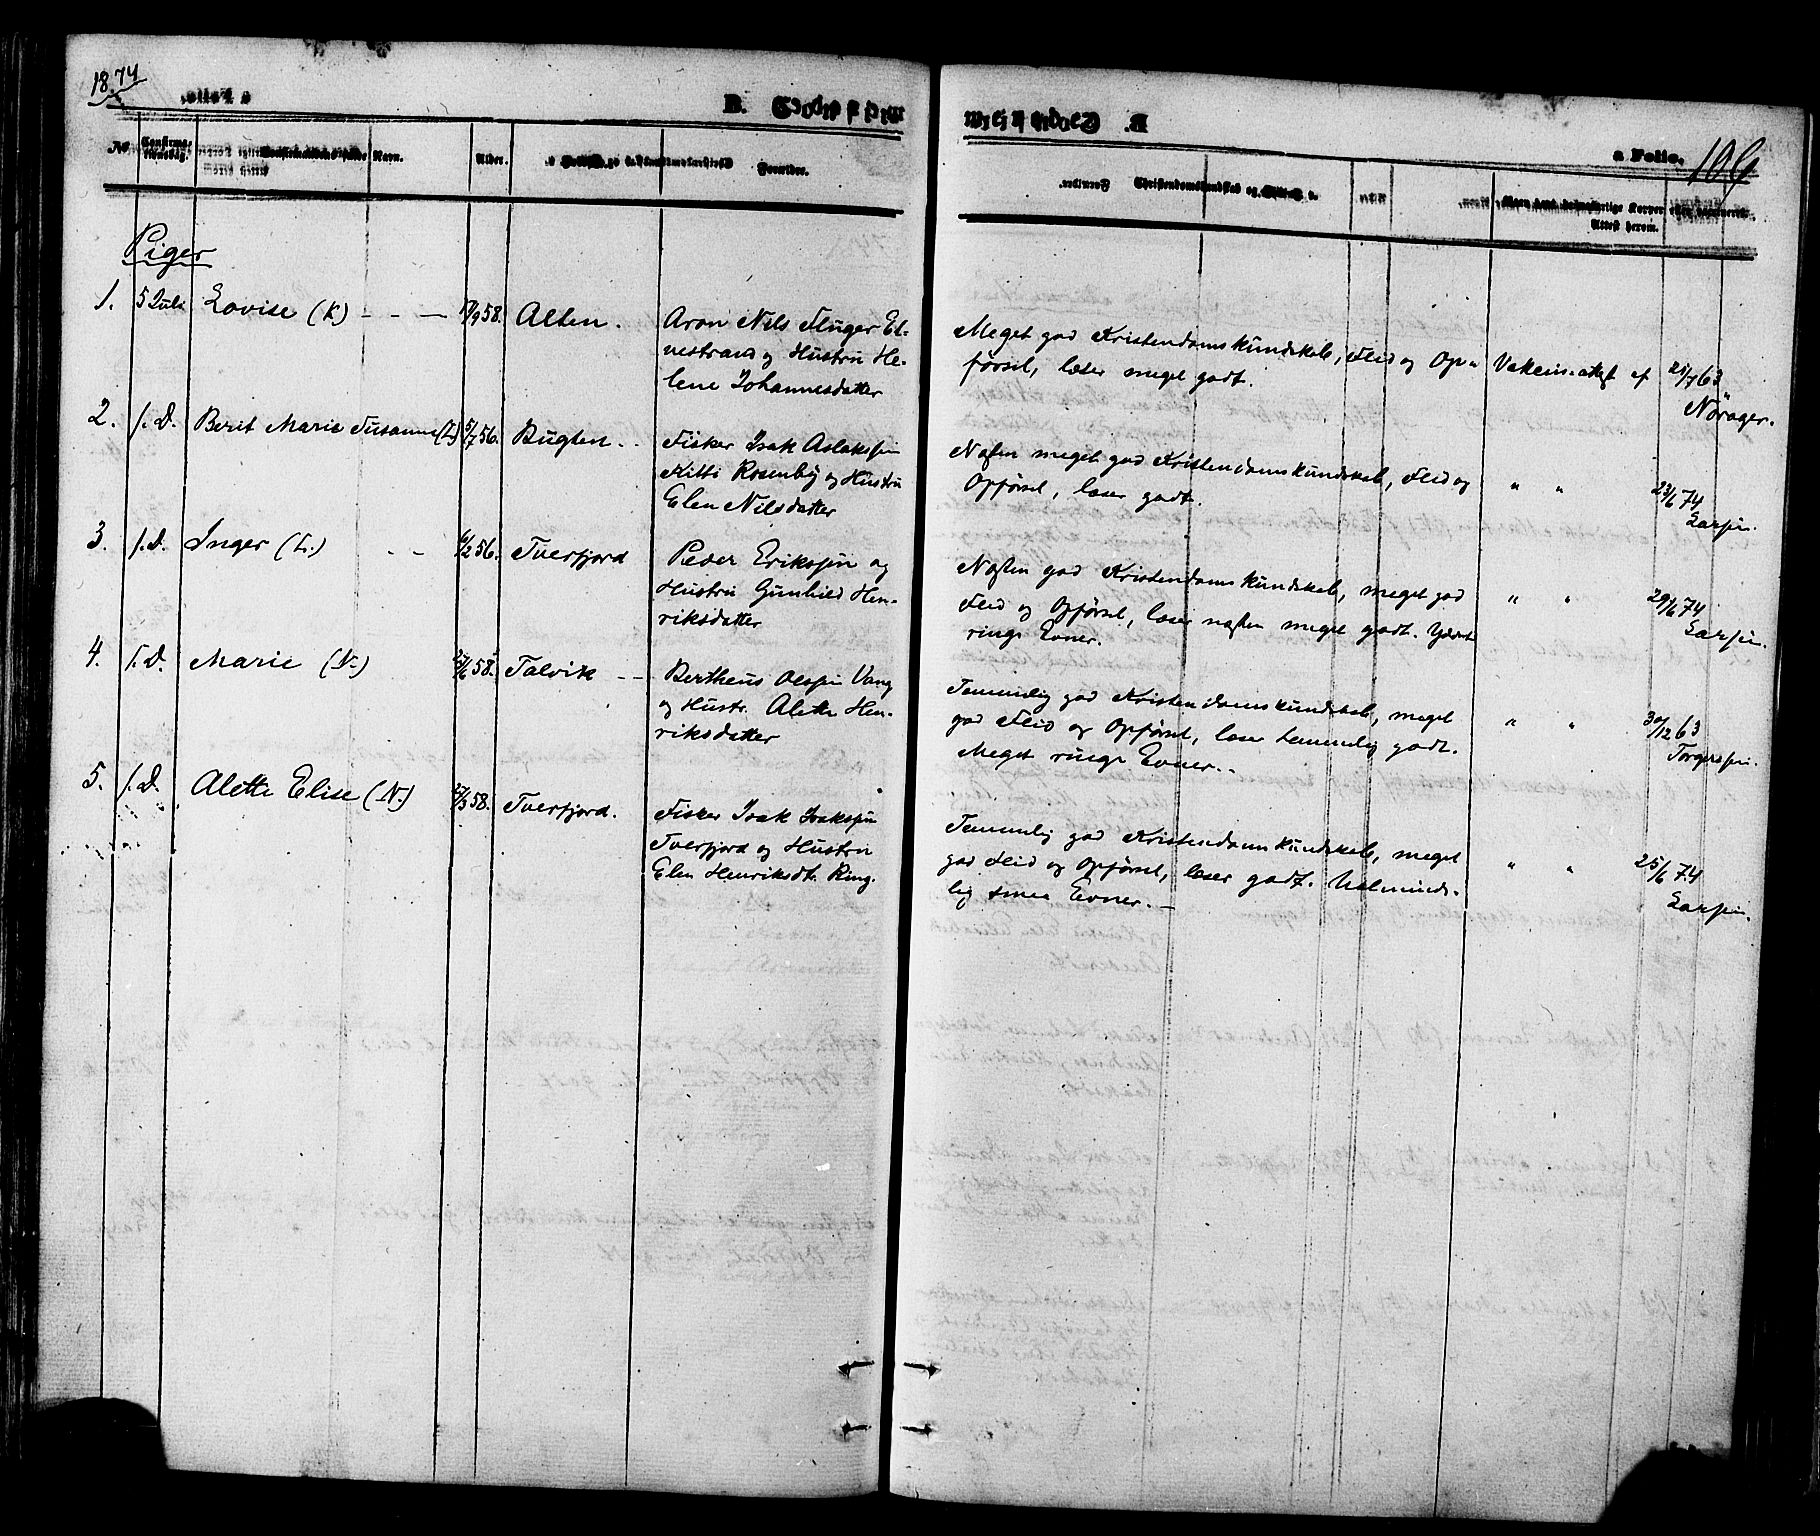 1874
106
a Folio.
No. Confirmationsdag. Navn. Alder. Forældre.
Piger
1. 5 Juli Lovise (K) 58. Alten. Aron Nils Fluger El-
vestrand og Hustru He-
lene Johannesdatter
Meget god Kristendomskundskab, Flid og Op-
førsel, læser meget godt.
Vakcin.attest af 63
Nörager.
2. s. D. Berit Marie Susanne (L) 5/7 56. Bugten
Fisker Isak Aslakssen
Kitti Rosenby og Hustru
Elen Nilsdatter
Næsten meget god Kristendomskundskab, Flid og
Opførsel, læser godt.
" " 23/6 74
Larsen.
3. s. D. Inger (L.) 56. Tverfjord
Peder Erikssen og
Hustru Gunhild Hen-
riksdatter
Næsten god Kristendomskundskab, meget god
Flid og Opførsel, læser næsten meget godt. Yderst
ringe Evner.
" " 29/6 74
Larsen.
4. s. D. Marie (N.) 58. Talvik
Bertheus Olssen Vang
og Hustr. Alette Hen-
riksdatter
Temmelig god Kristendomskundskab, meget
god Flid og Opførsel, læser temmelig godt.
Meget ringe Evner.
" " 30/12 63
Torgerssen.
5. s. D. Alette Elise (N.) 27/3 58. Tverfjord.
Fisker Isak Isakssen
Tverfjord og Hustru
Elen Henriksdt. Ring.
Temmelig god Kristendomskundskab, meget
god Flid og Opførsel, læser godt. Ualminde-
lig smaa Evner.
" " 25/6 74
Larsen.